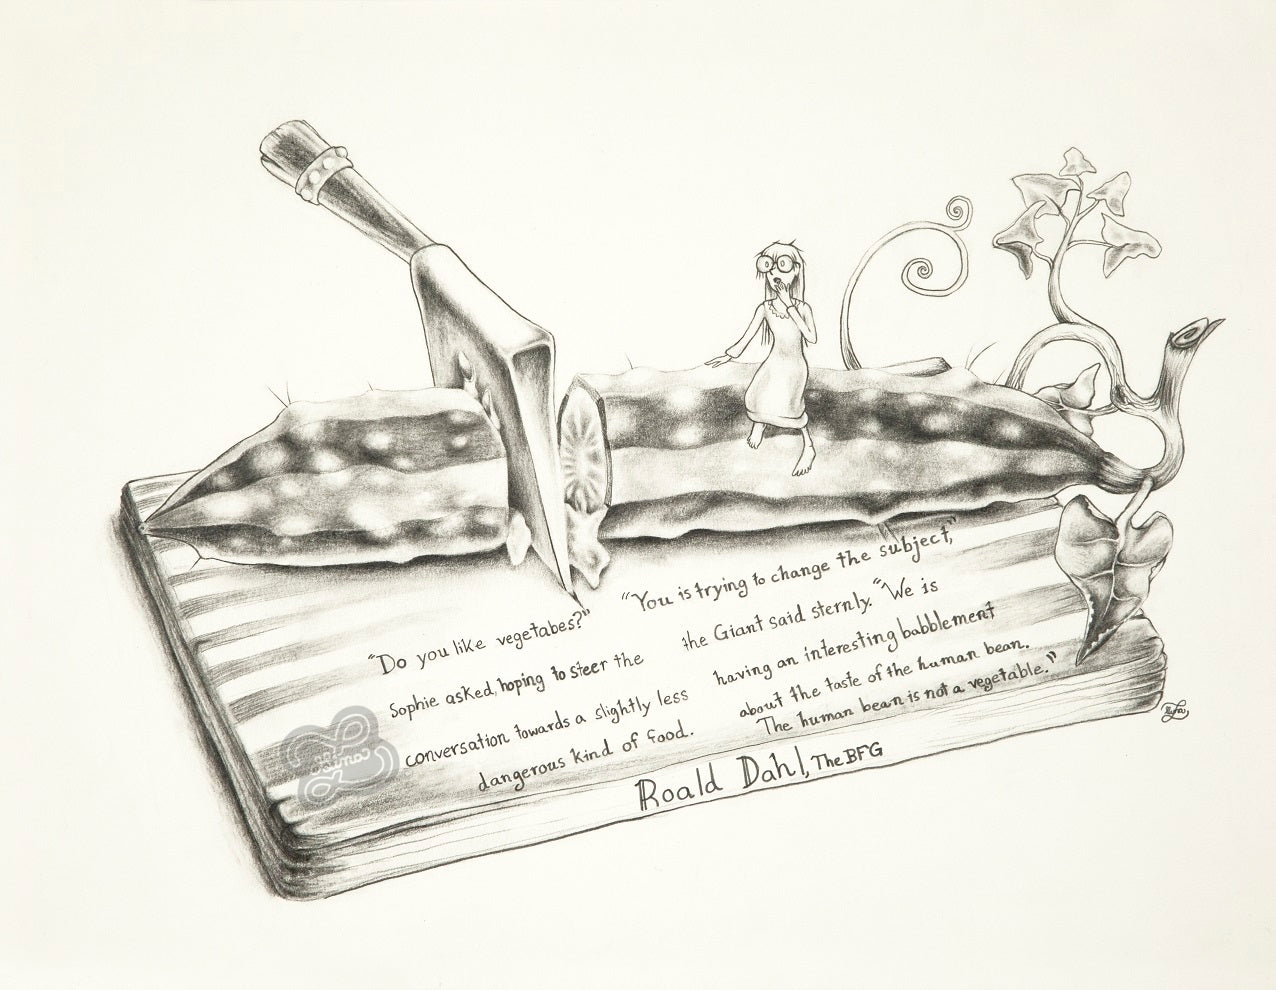 "Do you like vegetabes?"
Sophie asked, hoping to steer the
conversation towards a slightly less
dangerous kind of food.
"You is trying to change the subject,"
the Giant said sternly. "We is
having an interesting babblement
about the taste of the human bean.
The human bean is not a vegetable."
Roald Dahl, The BFG